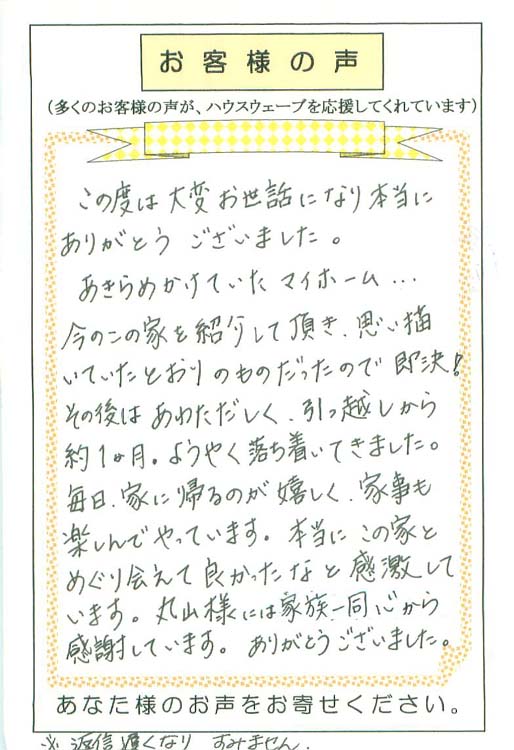 お客様の声
(多くのお客様の声が、ハウスウェーブを応援してくれています)
この度は大変お世話になり本当に
ありがとう ございました。
あきらめかけていた マイホーム…
今のこの家を紹介して頂き、思い描
いていたとおりのものだったので 即決!
その後は あわただしく、引っ越しから
約1ヶ月。ようやく落ち着いてきました。
毎日、家に帰るのが嬉しく、家事も
楽しんでやっています。本当に この家と
めぐり会えて良かったなと 感激して
います。丸山様には家族一同心から
感謝しています。ありがとうございました。
あなた様のお声をお寄せください。
※ 返信遅くなり すみません.